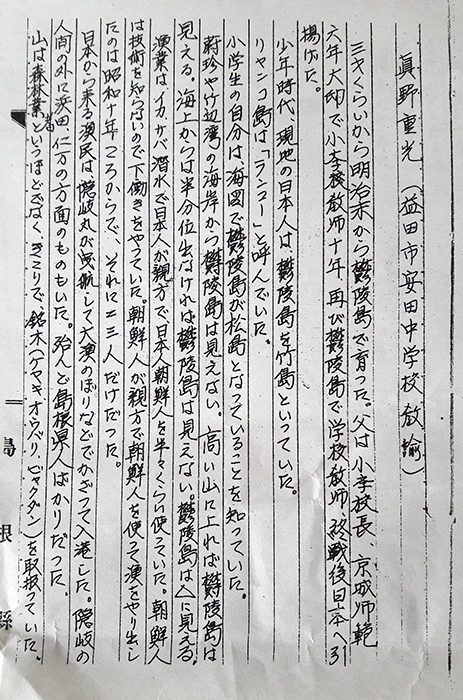 眞野重光（益田市安田中学校教諭）
三才くらいから明治末から鬱陵島で育った。父は小学校長、京城師範
六年大邱で小学校教師十年、再び鬱陵島で学校教師、終戦後日本へ引
揚げた。
少年時代、現地の日本人は鬱陵島を竹島といっていた。
リャンコ島は「ランコー」と呼んでいた。
小学生の自分は、海図で鬱陵島が松島となっていることを知っていた。
蔚珍や竹辺湾の海岸から鬱陵島は見えない。高い山に上れば鬱陵島は
見える。海上からは半分位出なければ鬱陵島は見えない。鬱陵島は△に見える。
漁業は、イカ、サバ、潜水で日本人が親方で日本人朝鮮人を半々くらい使っていた。朝鮮人
は技術を知らないので下働きをやっていた。朝鮮人が親方で朝鮮人を使って漁をやり出し
たのは昭和十年ころからで、それに二三人だけだった。
日本から来る漁民は隠岐丸が曳航して大漁のぼりなどでかざって入港した。隠岐の
人間の外に浜田、仁万の方面のものもいた。殆んど島根県人ばかりだった。
山は森林業者というほどでなく、きこりで銘木（アヤキオウバリ、ビャクダン）を取扱っていた。
島根縣